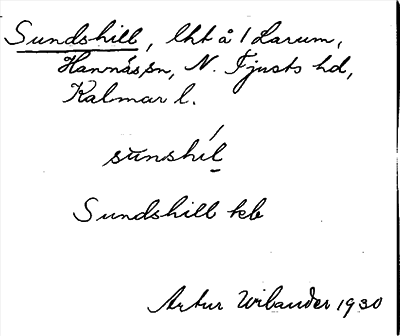 Sundshill, lht å 1 Larum,
Hannäs sn, N. Tjusts hd,
Kalmar l.
sūnshíl
Sundshill kb
Artur Wilander 1930